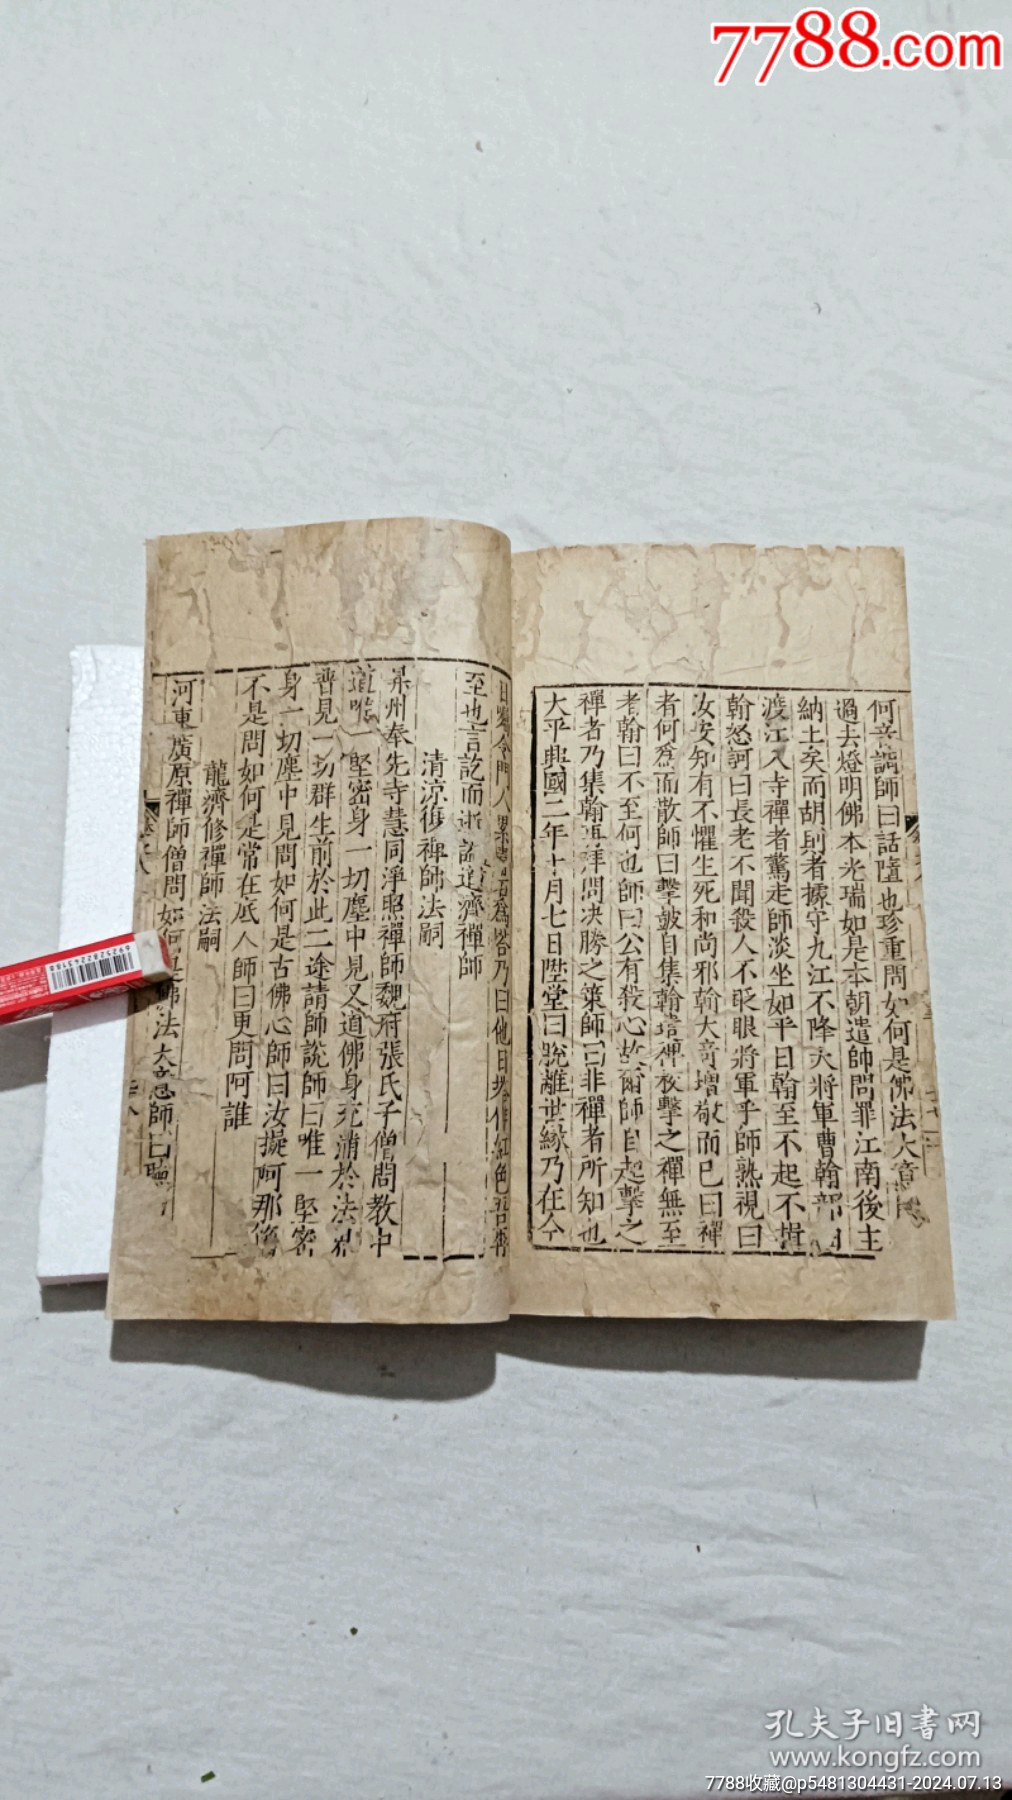 7788.com
師曰話墮也珍重問如何是佛法大意師
過去燈明佛本光瑞如是本朝遣師問罪江南後主
納土矣而胡則者據守九江不降大將軍曹翰部曲
渡江入寺禪者驚走師淡坐如平日翰至不起不揖
翰怒訶曰長老不聞殺人不眨眼將軍乎師熟視曰
汝安知有不懼生死和尚邪翰大奇增敬而已曰禪
者何為而散師曰擊皷自集翰遣裨校擊之禪無至
者翰曰不至何也師曰公有殺心故爾師自起擊之
禪者乃集翰再拜問决勝之策師曰非禪者所知也
太平興國二年十月七日陞堂曰脫離世緣乃在今
日 令門人累 為塔乃曰他日塔作紅色吾再
至也言訖而逝謚道濟禪師
清凉復禪師法嗣
昇州奉先寺慧同淨照禪師魏府張氏子僧問教中
道唯一堅密身一切塵中見又道佛身充滿於法界
普見一切群生前於此二途請師說師曰唯一堅密
身一切塵中見問如何是古佛心師曰汝擬阿那箇
不是問如何是常在底人師曰更問阿誰
龍濟修禪師法嗣
河東廣原禪師僧問如何是佛法大意師曰聽
6925282243188
孔夫子旧書网
www.kongfz.com
7788收藏@p5481304431-2024.07.13